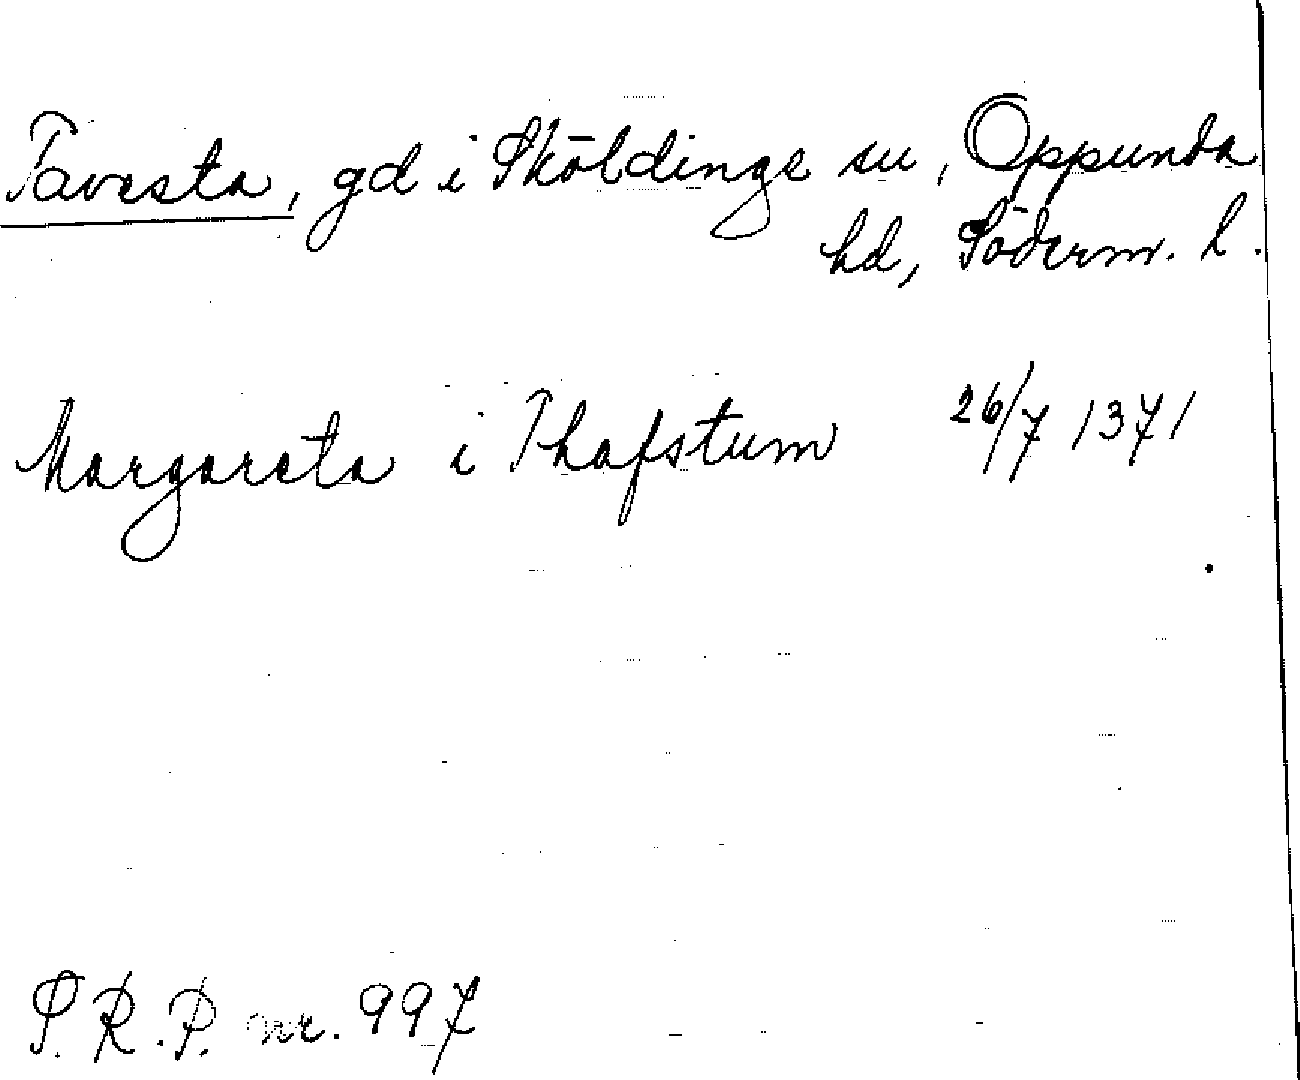 Tavesta, gd i Sköldinge sn, Oppunda
hd, Söderm. l.
Margareta i Thafstum 26/7 1371
S.R.P. nr. 997